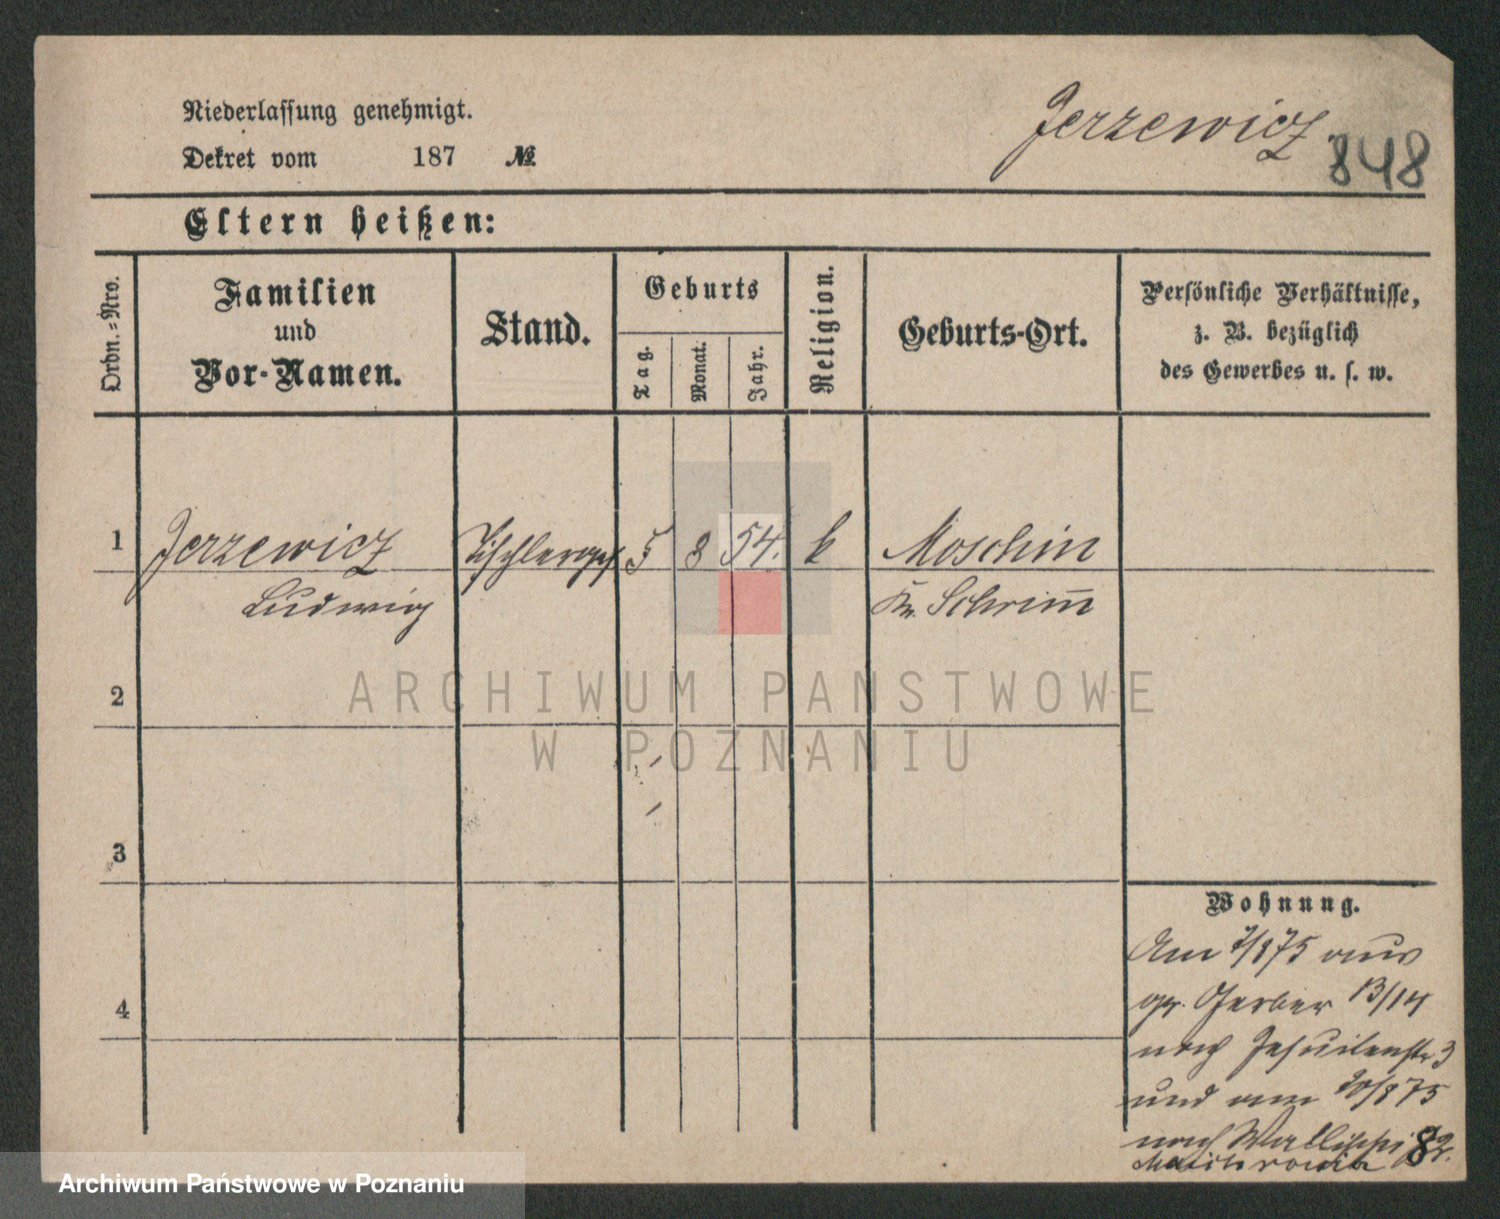 Niederlassung genehmigt.
Dekret vom 187 №
Jerzewicz
848
Eltern heißen:
Ordn.=Nro.
Familien
und
Vor-Namen.
Stand.
Geburts
Tag.
Monat.
Jahr.
Religion.
Geburts-Ort.
Persönliche Verhältnisse,
z. B. bezüglich
des Gewerbes u. s. w.
1 Jerzewicz Tischlerges 5 8 54. k Moschin
Ludwig Kr. Schrim̅
2
3
4
Wohnung.
Am /875 aus
gr. Gerber 13/14
nach Jesuitenstr 3
und am 20/8 75
nach Wallischei 82.
ARCHIWUM PAŃSTWOWE
W POZNANIU
Archiwum Państwowe w Poznaniu